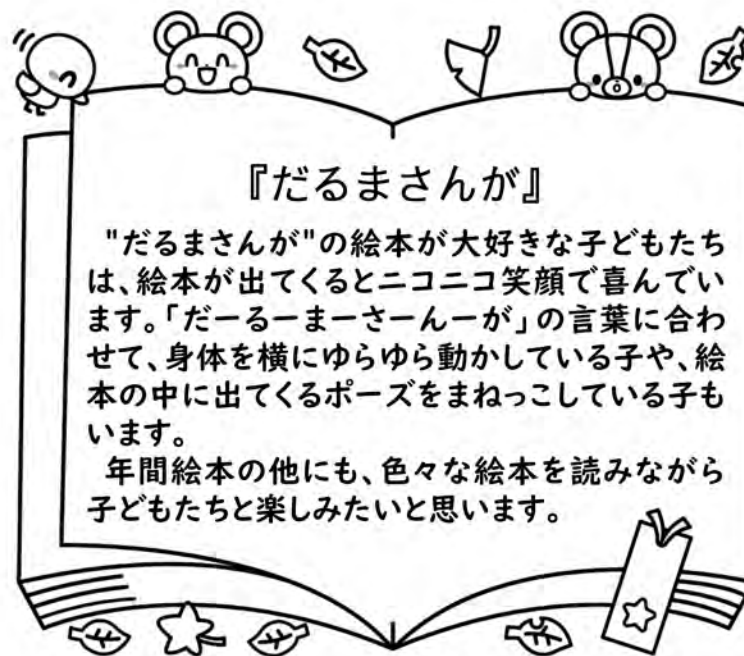 『だるまさんが』
"だるまさんが"の絵本が大好きな子どもたち
は、絵本が出てくるとニコニコ笑顔で喜んでい
ます。「だーるーまーさーんーが」の言葉に合わ
せて、身体を横にゆらゆら動かしている子や、絵
本の中に出てくるポーズをまねっこしている子も
います。
年間絵本の他にも、色々な絵本を読みながら
子どもたちと楽しみたいと思います。